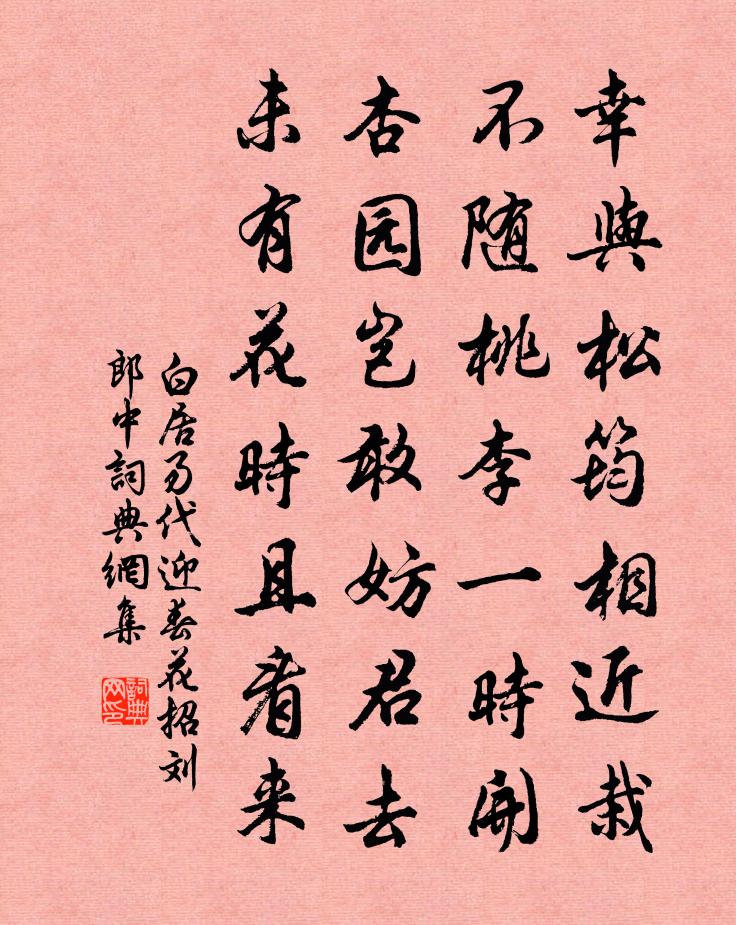 幸與松筠相近栽
不随桃李一時開
杏园岂敢妨君去
未有花時且看来
白居易代迎春花招刘
郎中詞典網集
詞典网印